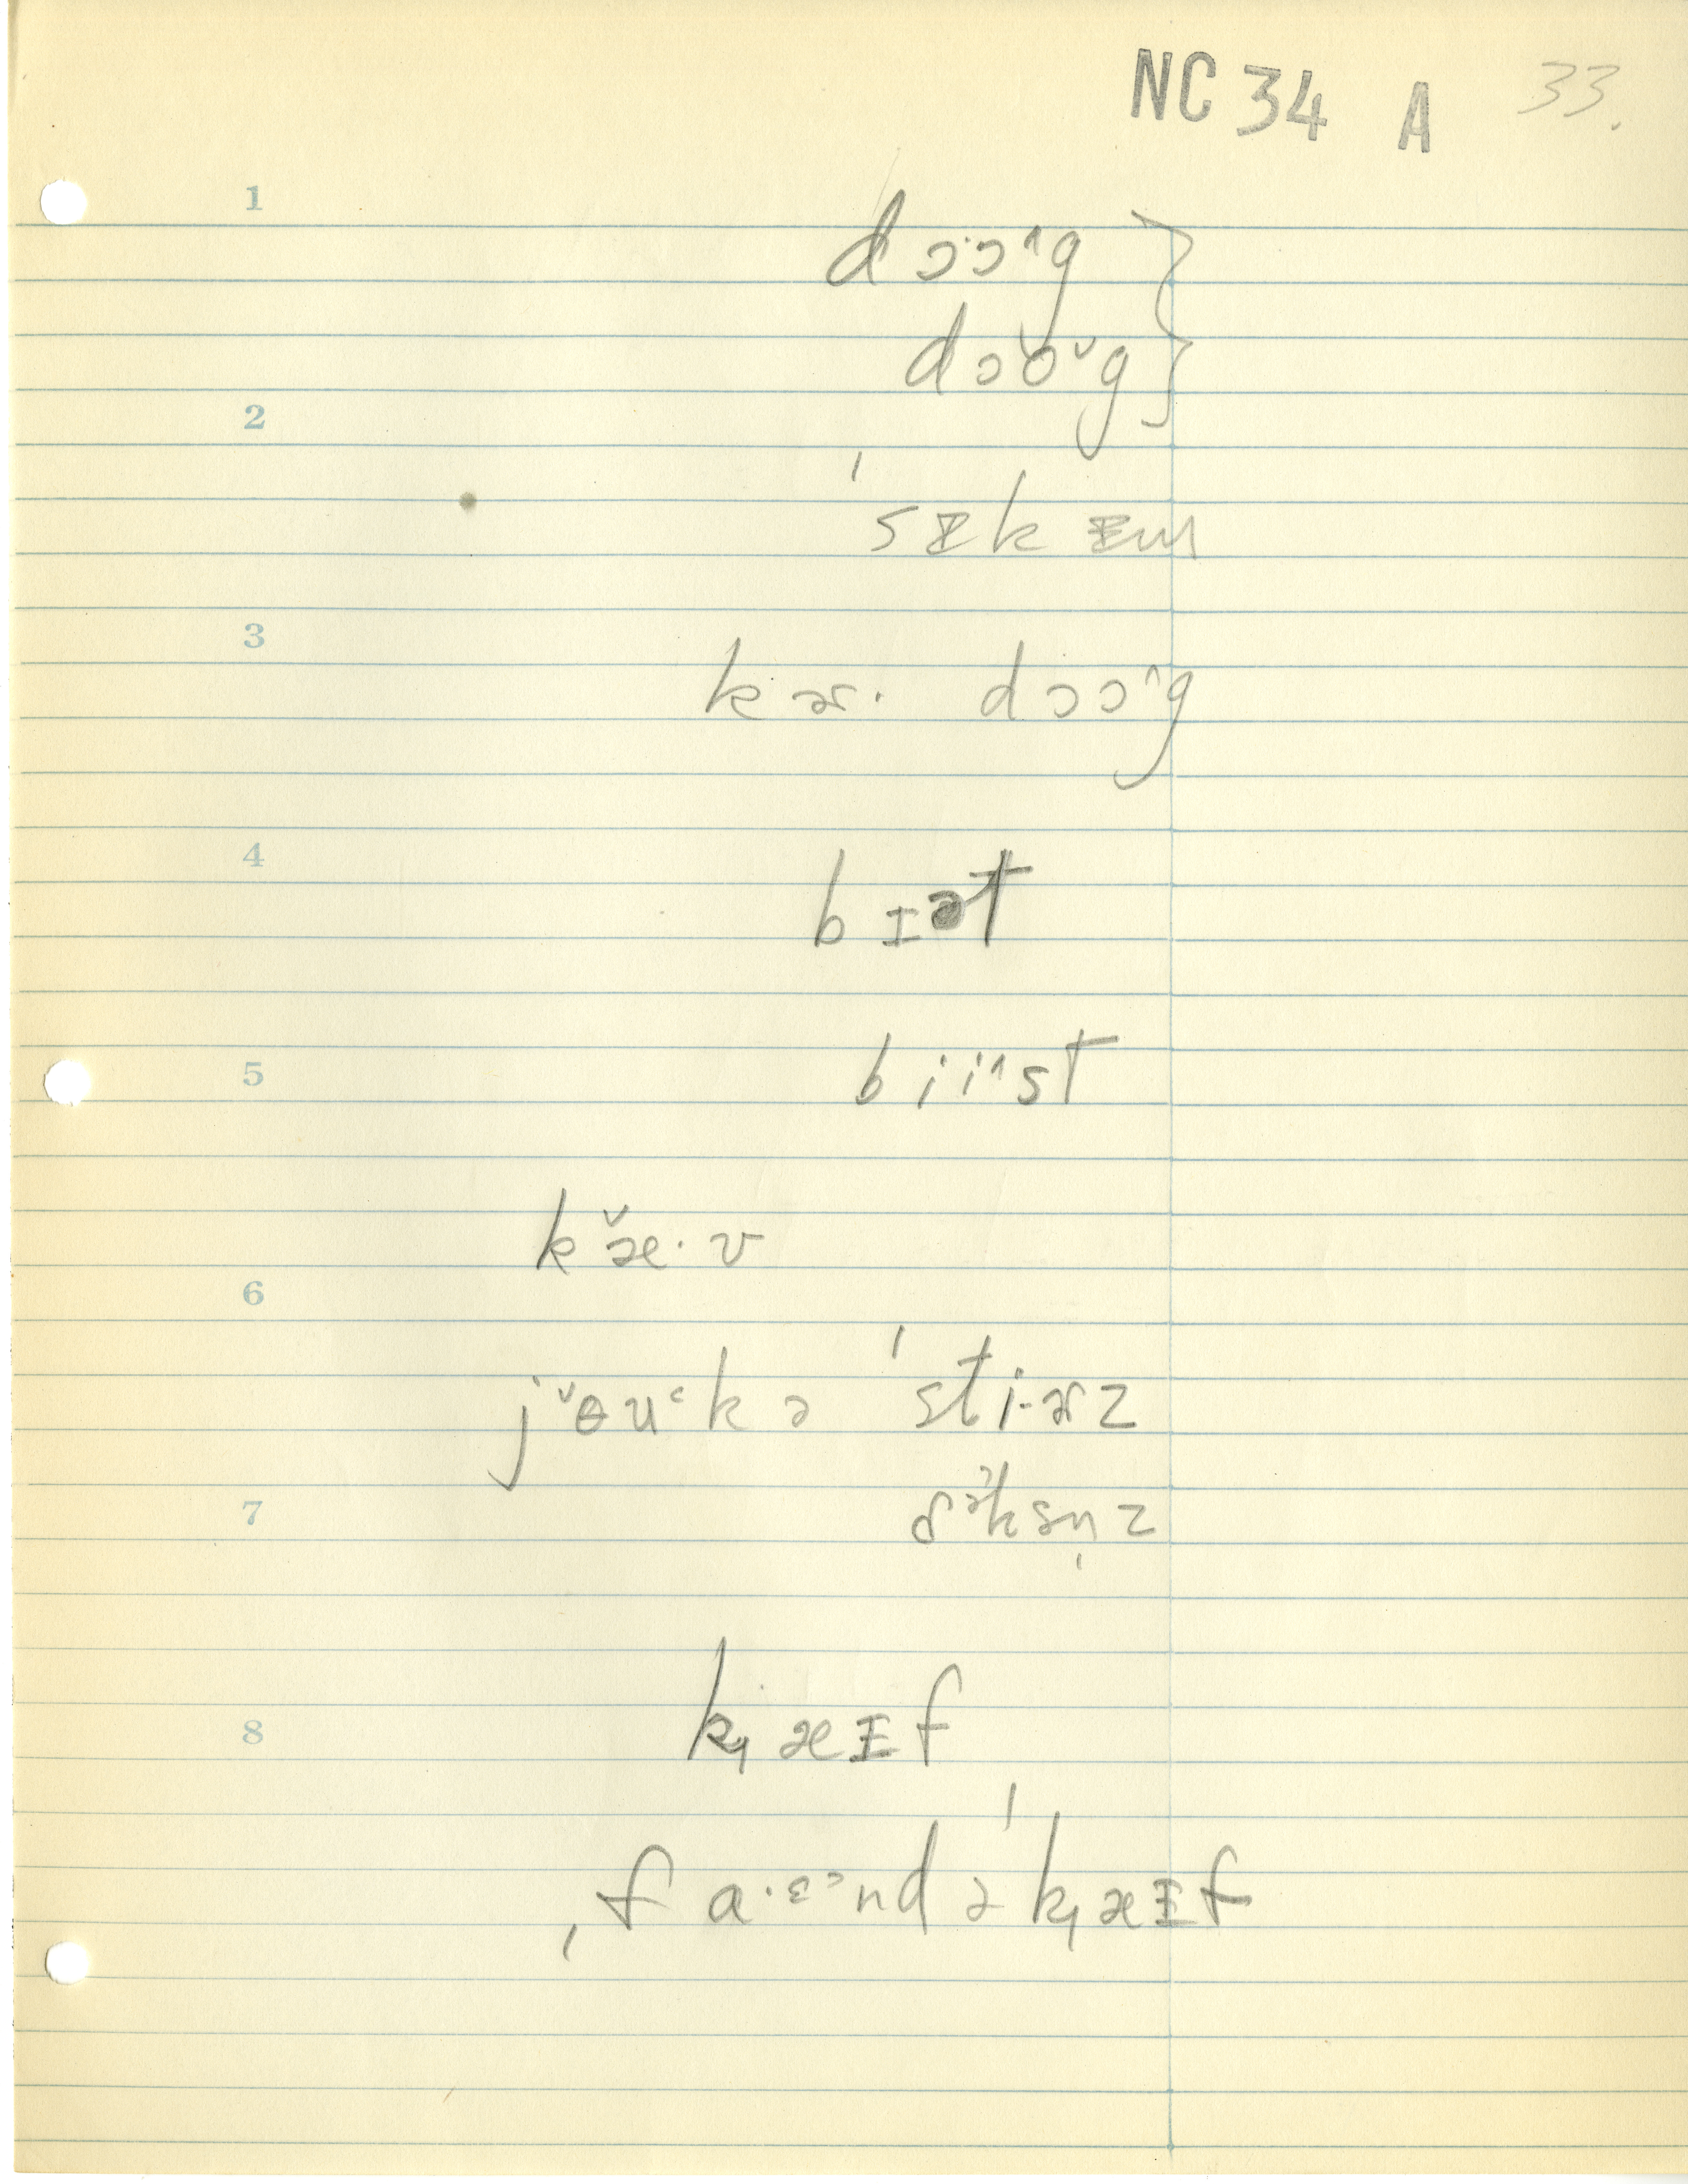 NC 34 A 33.
1
dɔɔ˄g
dɔo˅g
2
ˈsɪkɪm
3
kɚ· dɔɔ˄g
4
bɪət
5
bii˄st
kæ̌·v
6
jɵu˂kə ˈsti·ɚz
7
ðəksn̩z
8
k̟æɪf
ˌfa·ɛ˃ndəˈk̟æɪf